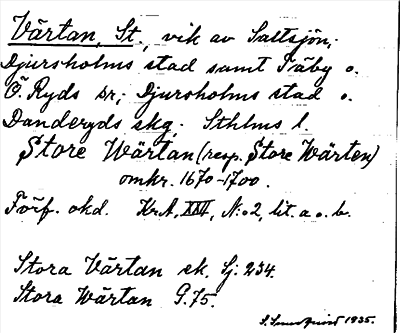 Värtan, St., vik av Saltsjön,
Djursholms stad samt Täby o.
Ö. Ryds sr; Djursholms stad o.
Danderyds skg; Sthlms l.
Store Wärtan (resp. Store Wärten)
omkr. 1670-1700.
Förf. okd. Kr. A, XXV, N:o 2, lit. a o. b.
Stora Värtan sk. Sj. 234.
Stora Wärtan G. 75.
1935.